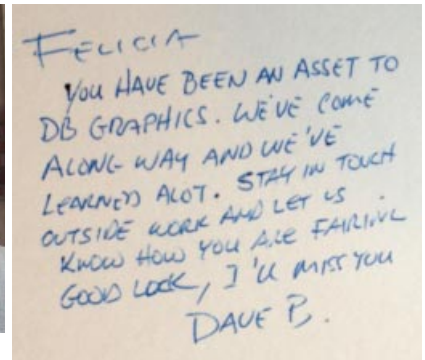 FELICIA
YOU HAVE BEEN AN ASSET TO
DB GRAPHICS. WE'VE COME
ALONG WAY AND WE'VE
LEARNED ALOT. STAY IN TOUCH
OUTSIDE WORK AND LET US
KNOW HOW YOU ARE FAIRING
GOOD LUCK, I'LL MISS YOU
DAVE B.